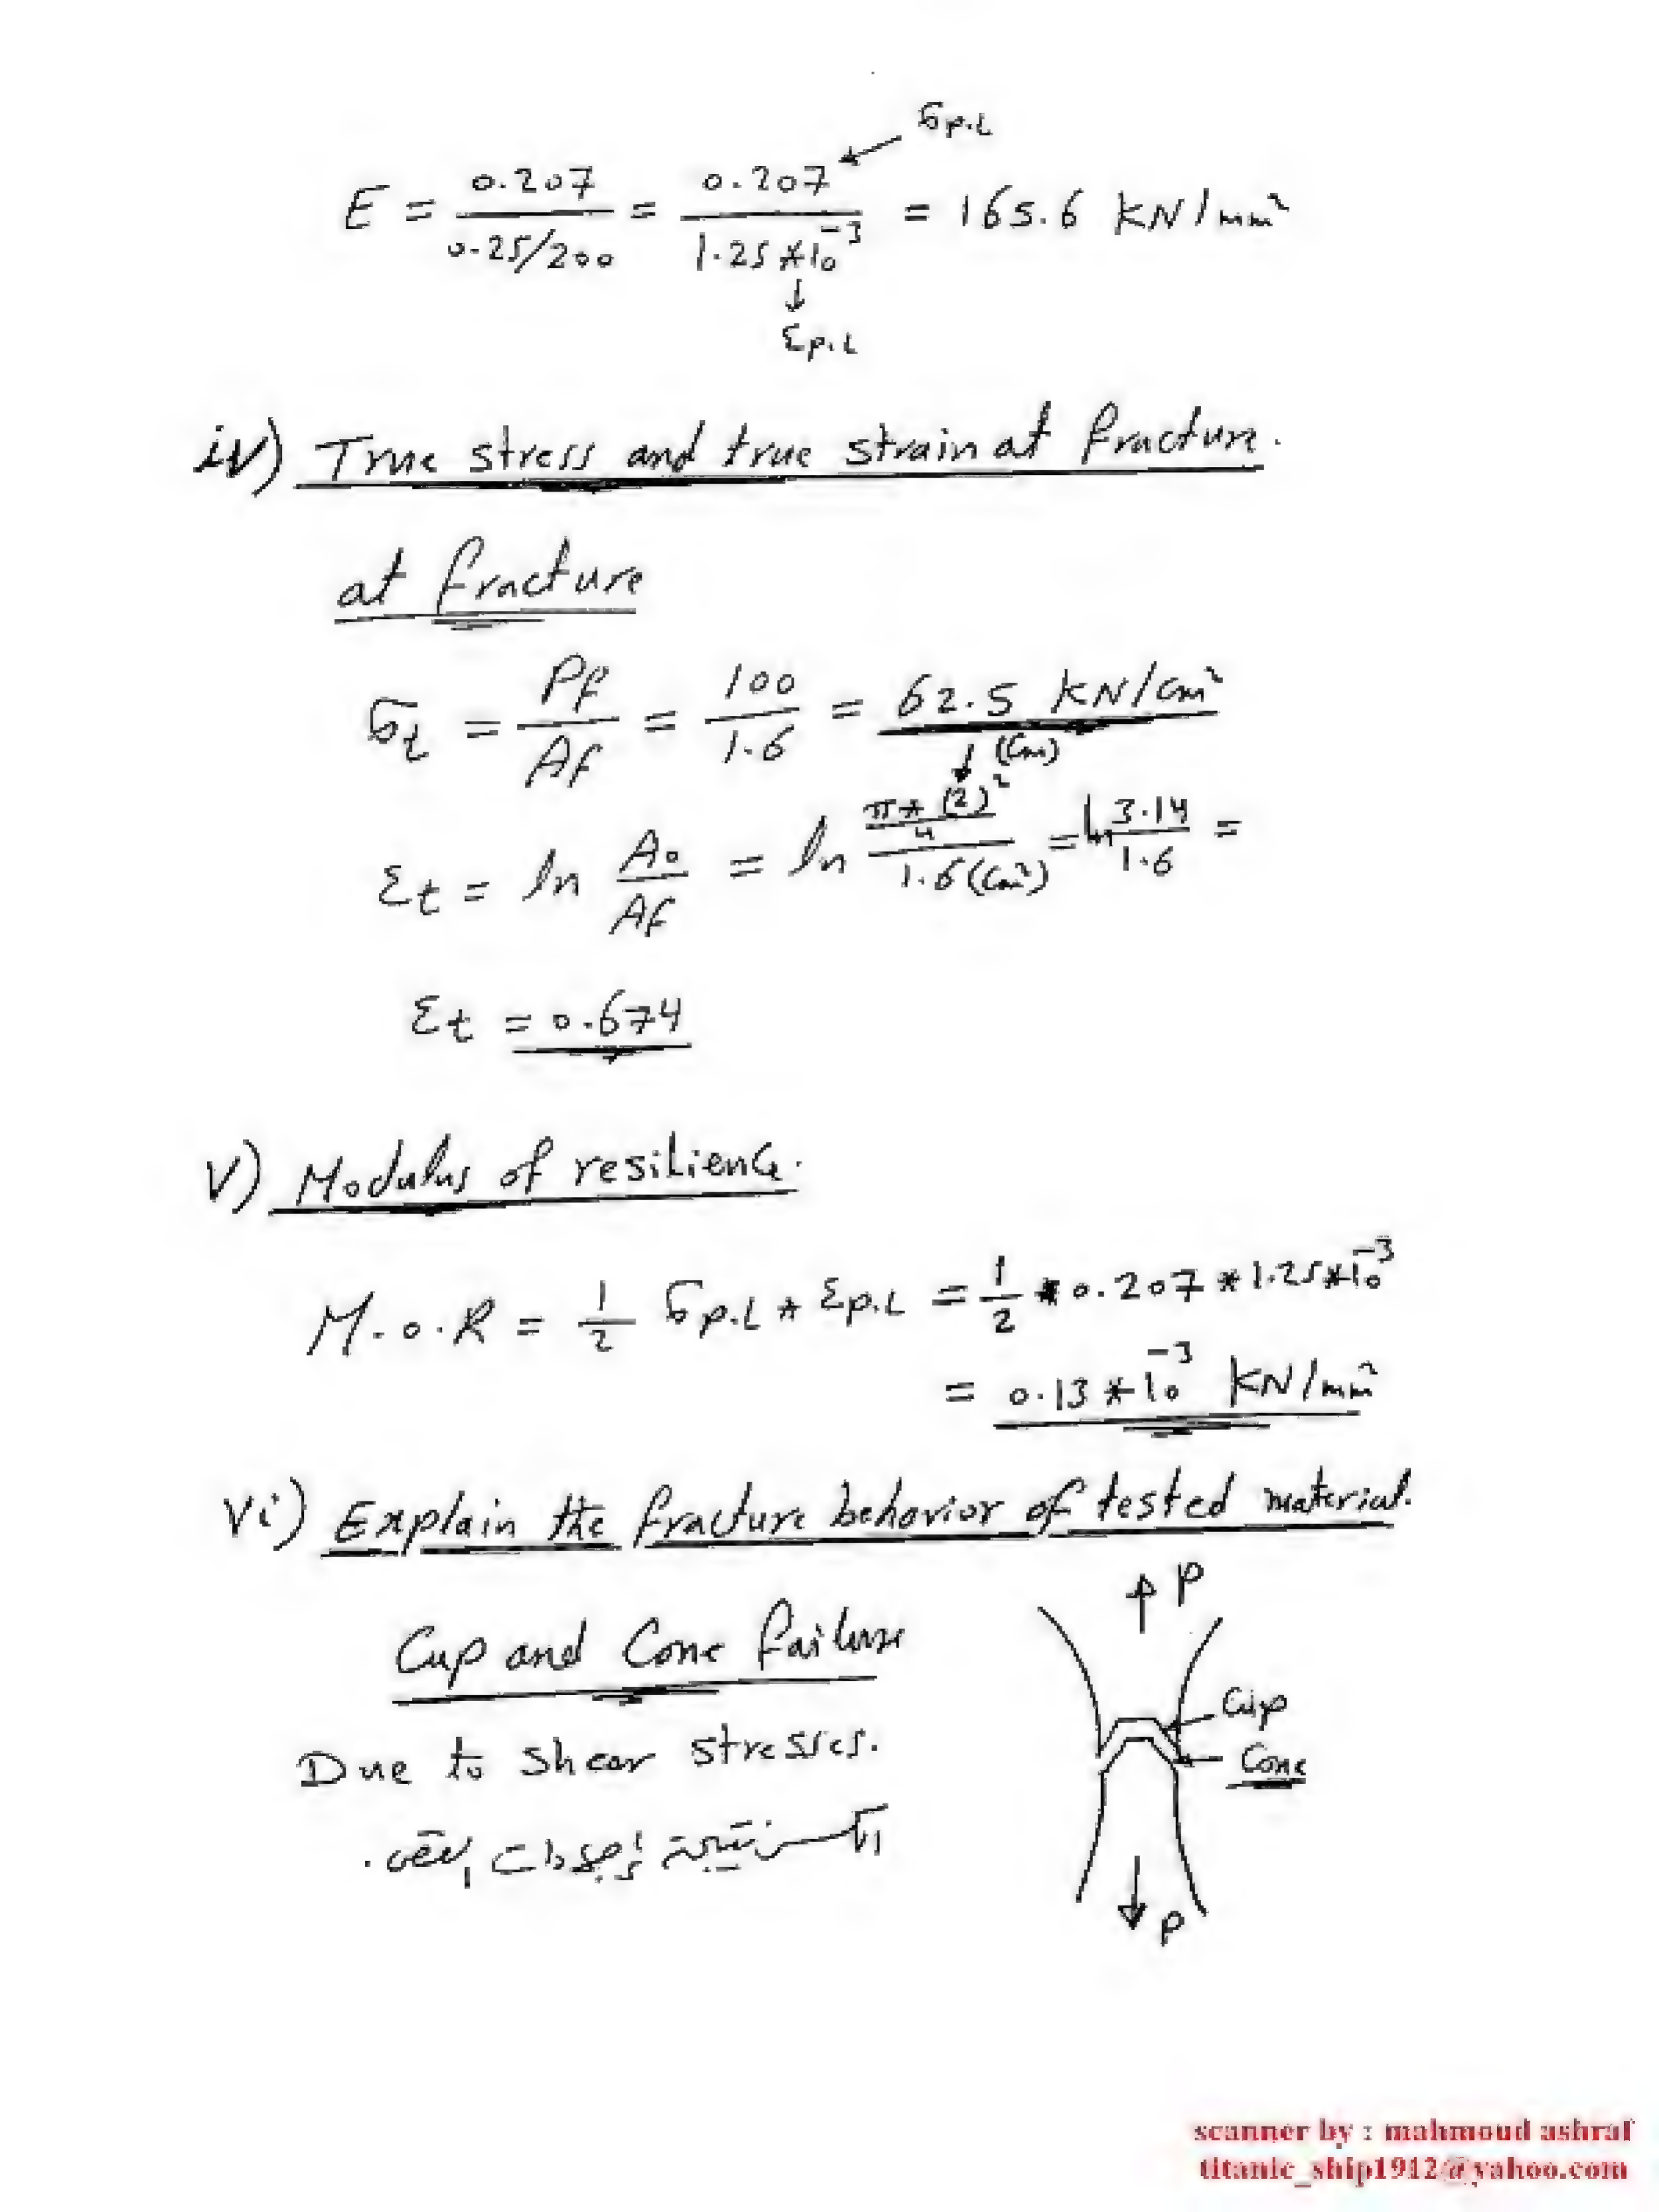 σp.L
E = 0.207 / 0.25/200 = 0.207 / 1.25*10^-3 = 165.6 KN/mm²
εp.L
iv) True stress and true strain at fracture.
at fracture
σt = Pf / Af = 100 / 1.6 = 62.5 KN/cm²
(cm)
εt = ln Ao / Af = ln π*(2)²/4 / 1.6(cm²) = ln 3.14 / 1.6 =
εt = 0.674
V) Modulus of resilience.
M.o.R = 1/2 σp.L * εp.L = 1/2 * 0.207 * 1.25*10^-3
= 0.13*10^-3 KN/mm²
Vi) Explain the fracture behavior of tested material.
Cup and Cone failure
Due to shear stresses.
نتيجة إجهادات القص.
P
Cup
Cone
P
scanner by : mahmoud ashraf
titanic_ship1912@yahoo.com